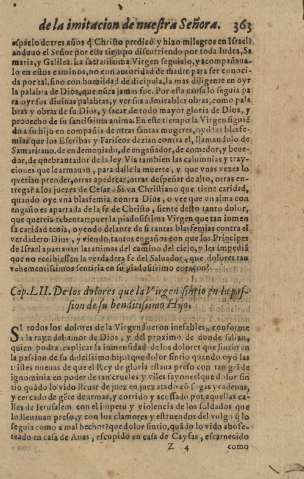 de la imitacion de nuestra Señora. 363
espacio de tres años q̃ Christo predicò y hizo milagros en Israel
anduuo el Señor por este tiempo discurriendo por toda Iudea, Sa
maria, y Galilea. La sacratissima Virgen seguialo, y acompañaua
lo en estos caminos, no con autoridad de madre para ser conoci-
da por tal, sino con humildad de discipula, la mas diligente en oyr
la palabra de Dios, que nũca jamas fue. Por esta causa lo seguia pa
ra oyr sus diuinas palabras, y ver sus admirables obras, como pala
bras y obras de su Dios, y sacar de todo mayor gloria de Dios, y
prouecho de su sanctissima anima. En este tiempo la Virgen siguiẽ
do a su hijo en compañia de otras santas mugeres, oyò las blasfe-
mias que los Escribas y Fariseos dezian contra el, llamandolo de
Samaritano, de endemoniado, de engañador, de comedor, y beue-
dor, de quebrantador de la ley. Via tambien las calumnias y tray-
ciones que le armauan, para dalle la muerte, y que vnas vezes lo
querian prender, otras apedrear, otras despeñar de alto, otras en-
tregar a los juezes de Cesar. Si vn Christiano que tiene caridad,
quando oye vna blasfemia contra Dios, o vee que vn alma con
engaño es apartada de la fe de Christo, siente desto tanto dolor,
que querria rebentar: que la piadosissima Virgen que tan inmen
sa caridad tenia, oyendo delante de si tantas blasfemias contra el
verdadero Dios, y viendo tantos engaños con que los Principes
de Israel apartauan las animas del camino del cielo, y les impedia
que no recibiessen la verdadera fe del Saluador, que dolores tan
vehementissimos sentiria en su piadosissimo coraçon?
Cap. LII. De los dolores que la Virgen sintio en la pas-
sion de su benditissimo Hijo.
SI todos los dolores de la Virgen fueron inefables, conforme
a la raya del amor de Dios, y del proximo de donde salian,
quien podra explicar la inmensidad de los dolores que sintio en
la passion de su dulcissimo hijo? que dolor sintio quando oyò las
tristes nueuas de que el Rey de gloria estaua preso con tan grãde
ignominia en poder de tan crueles y viles sayones? que dolor sin
tio quãdo lo vido lleuar de juez en juez atado cõ sogas y cadenas,
y cercado de gẽte de armas, y corrido y acossado por aquellas
calles de Ierusalem con el impetu y violencia de los soldados que
lo lleuauan preso, y con los clamores y estruendos del vulgo q̃ lo
seguia como a mal hechor? que dolor sintio, quãdo lo vido abofe-
teado en casa de Anas, escupido en casa de Cayfas, escarnecido
Z 4 como